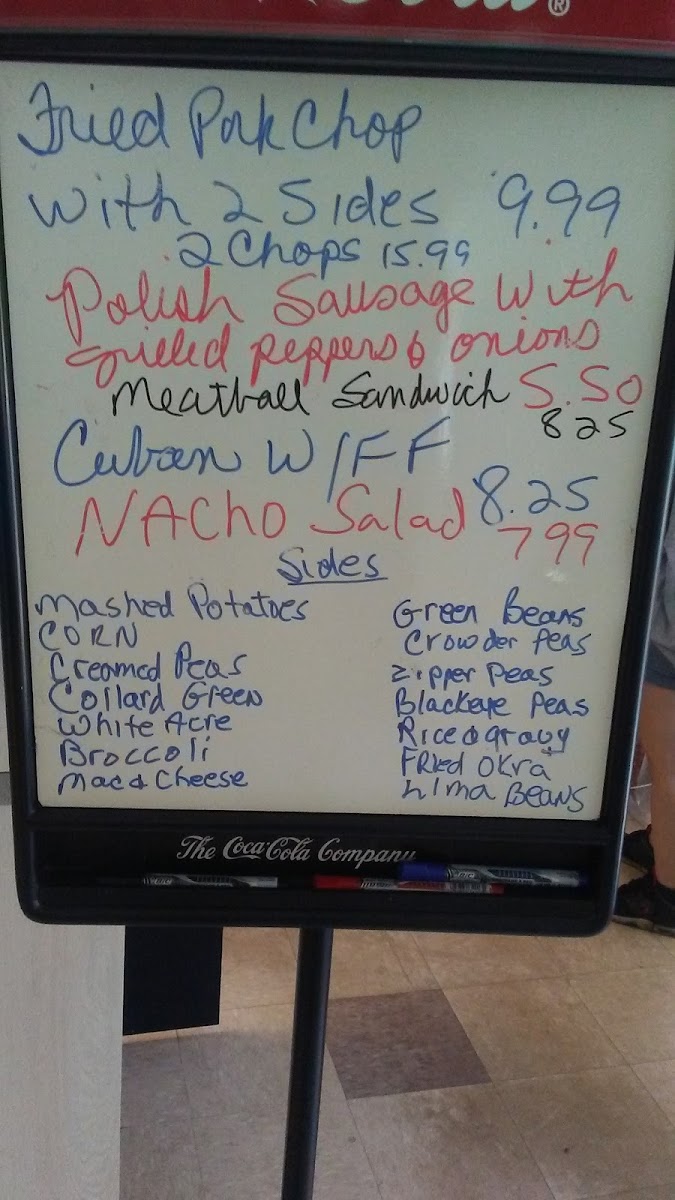 ®
Fried Pork Chop
with 2 Sides 9.99
2 Chops 15.99
Polish Sausage with
grilled peppers & onions
5.50
Meatball Sandwich
825
Cuban W/FF
8.25
NACHO Salad
799
Sides
Mashed Potatoes
CORN
Creamed Peas
Collard Green
White Acre
Broccoli
Mac & Cheese
Green Beans
Crowder Peas
Zipper Peas
Blackeye Peas
Rice & gravy
FRIED OKra
Lima BEANS
The Coca-Cola Company